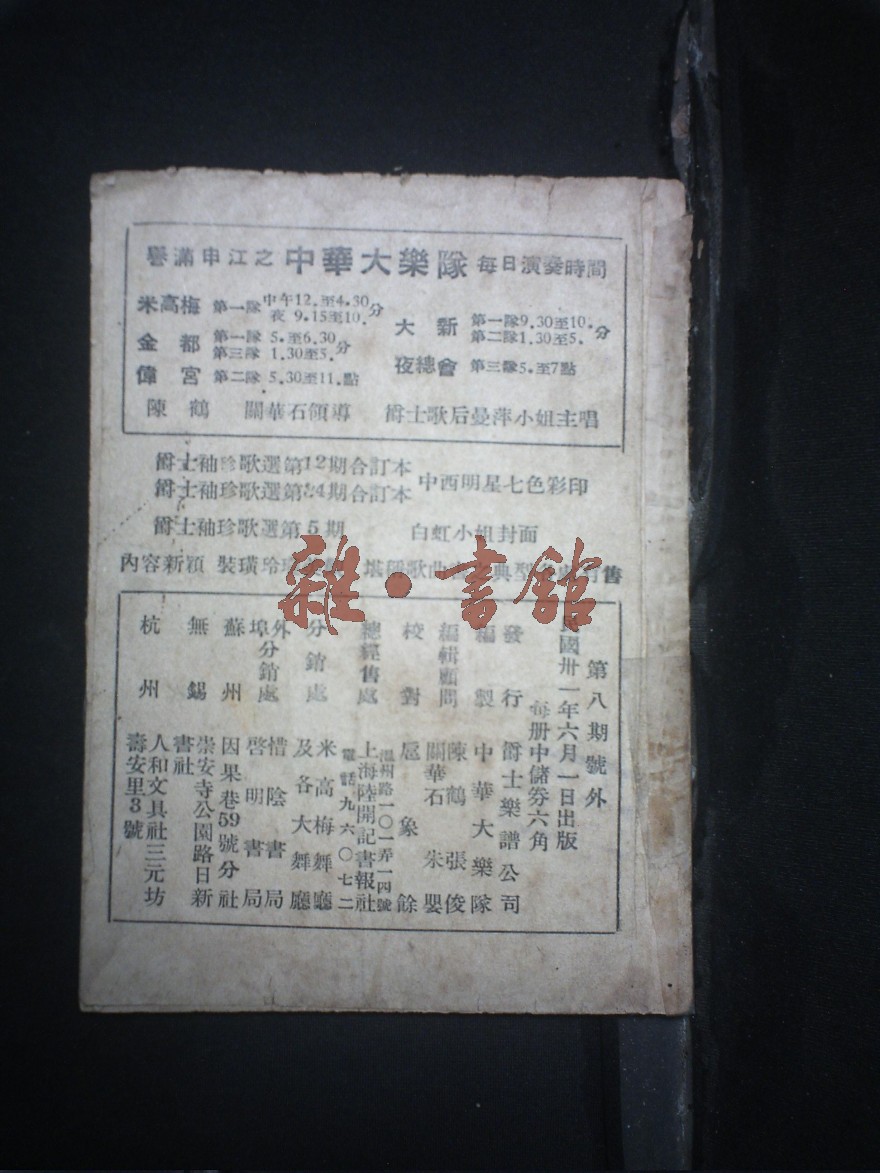 譽滿申江之 中華大樂隊 每日演奏時間
米高梅 第一隊 中午12.至4.30分
夜 9.15至10.
金都 第一隊 5.至6.30分
第三隊 1.30至5.
偉宮 第二隊 5.30至11.點
大新 第一隊9.30至10.分
第二隊1.30至5.
夜總會 第三隊5.至7點
陳鶴 關華石領導 爵士歌后曼萍小姐主唱
爵士袖珍歌選第12期合訂本
爵士袖珍歌選第34期合訂本
中西明星七色彩印
爵士袖珍歌選第5期 白虹小姐封面
內容新穎 裝璜玲 堪稱歌曲 典型 售
雜·書館
第八期號外
民國卅一年六月一日出版
每册中儲券六角
發行 爵士樂譜公司
編製 中華大樂隊
編輯顧問 陳鶴 張俊
關華石 朱嬰
校對 扈象餘
總經售處 溫州路一〇一弄一四號
上海陸開記書報社
電話九六〇七二
分銷處 米高梅舞廳
及各大舞廳
外埠分銷處 惜陰書局
啓明書局
蘇州 因果巷59號分社
無錫 崇安寺公園路日新
書社
杭州 人和文具社三元坊
壽安里3號